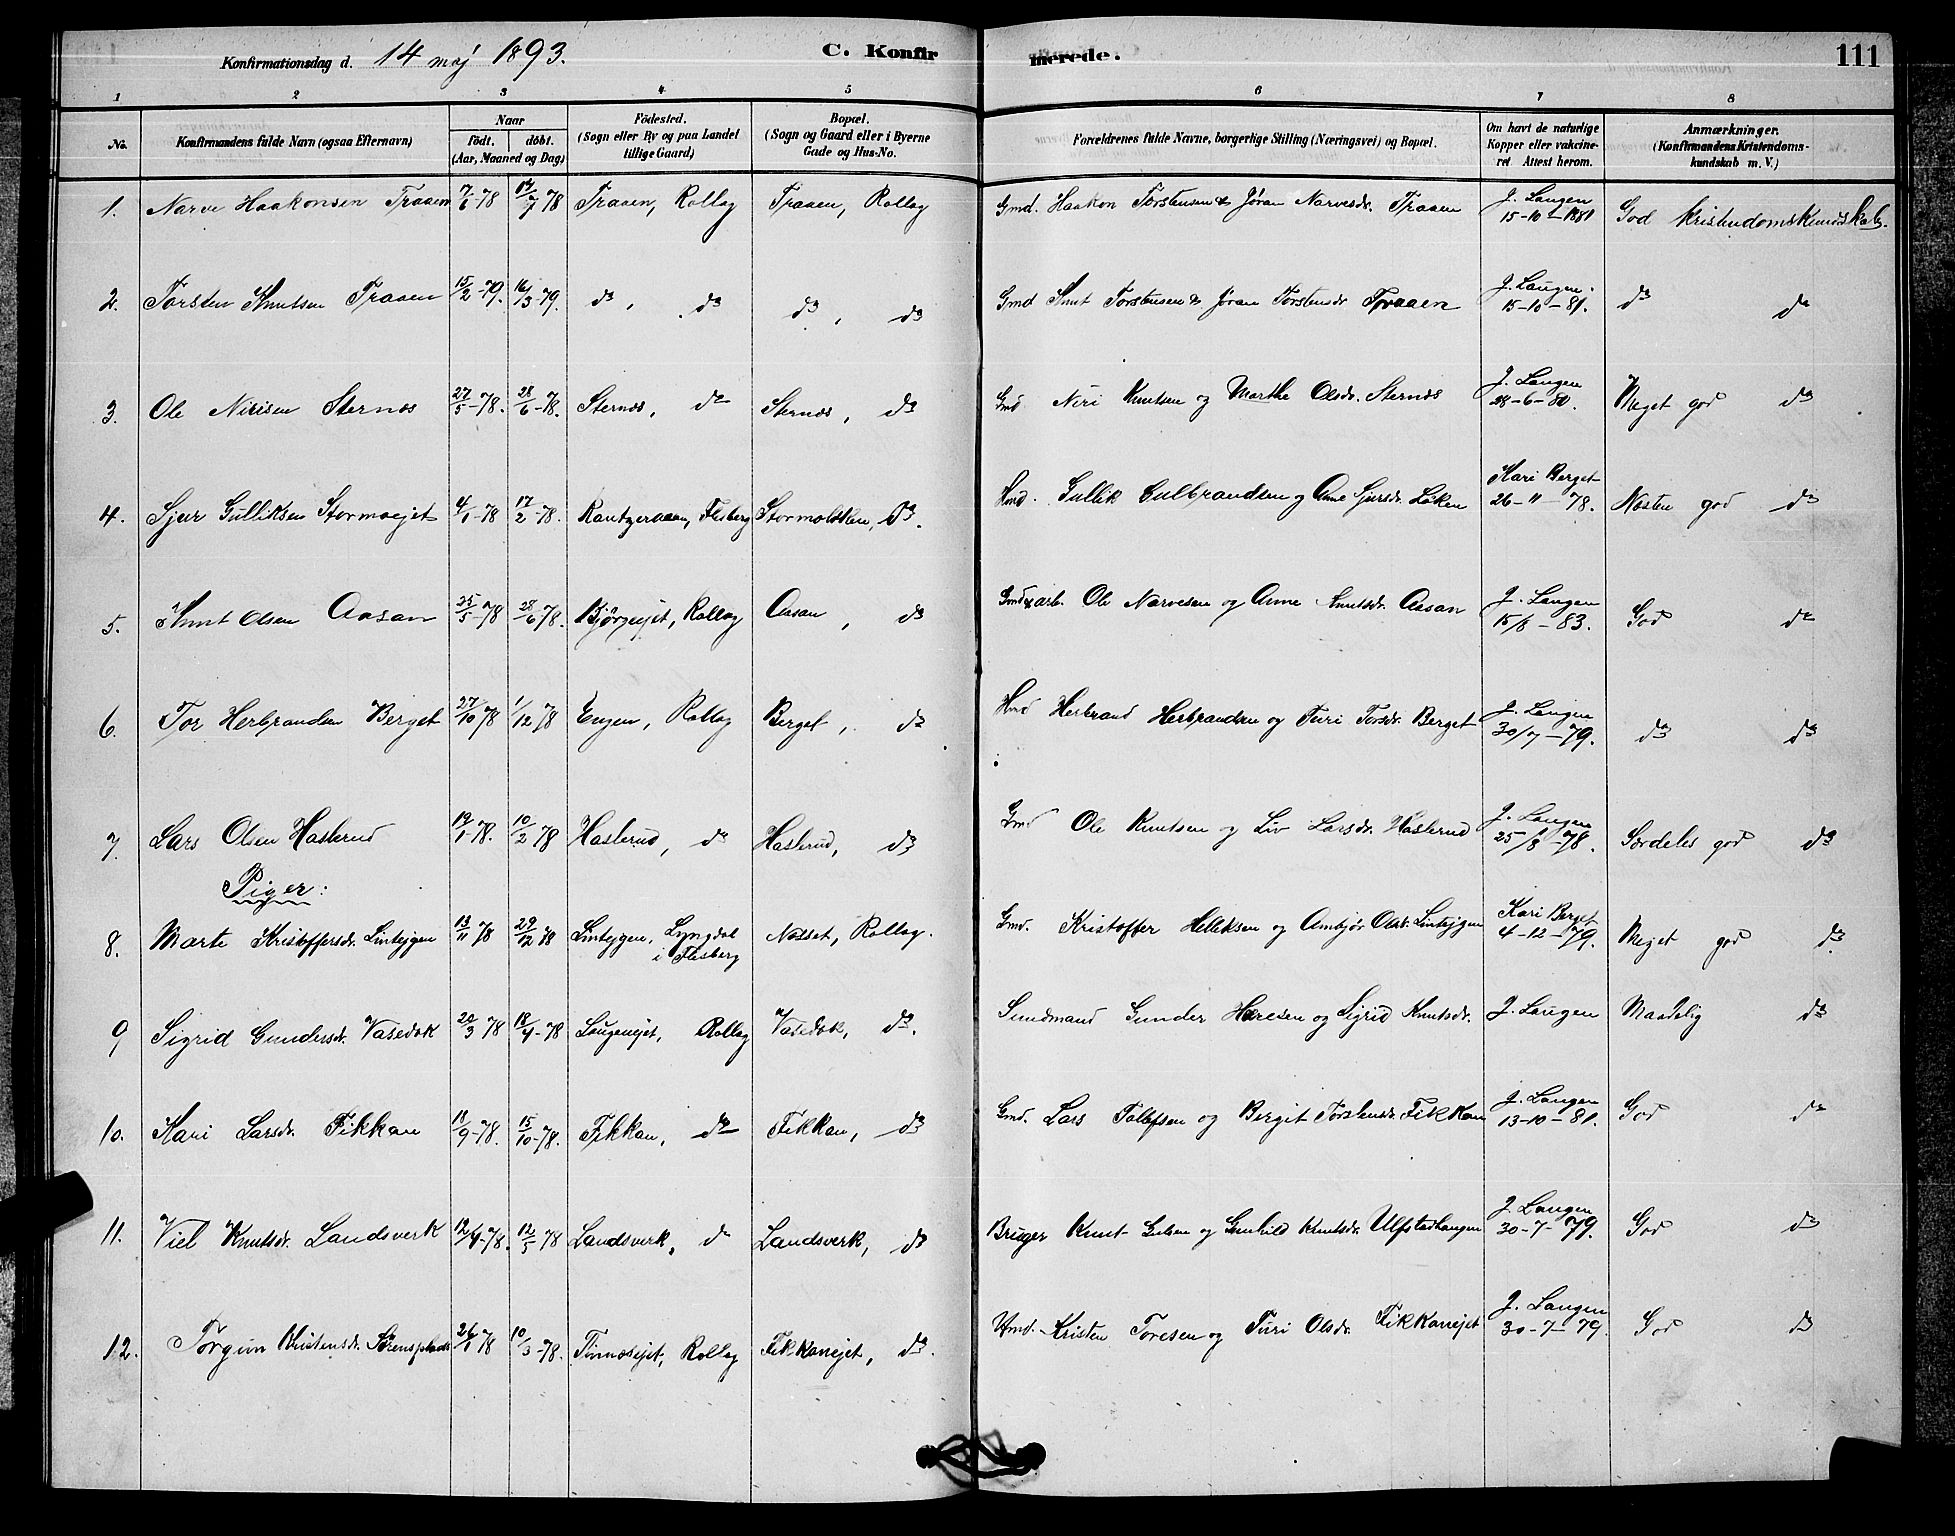 Konfirmationsdag d. 14 maj 1893. C. Konfirmerede. 111
1 2 3 4 5 6 7 8
No. Konfirmandens fulde Navn (ogsaa Efternavn) Naar födt. döbt. (Aar, Maaned og Dag) Födested. (Sogn eller By og paa Landet tillige Gaard) Bopæl. (Sogn og Gaard eller i Byerne Gade og Hus-No. Forældrenes fulde Navne, borgerlige Stilling (Næringsvei) og Bopæl. Om havt de naturlige Kopper eller vakcineret Attest herom. Anmærkninger. (Konfirmandens Kristendomskundskab m. V.)
1. Narve Haakonsen Traaen 7/6-78 14/7 78 Traaen, Rollag Traaen, Rollag Gmd. Haakon Torstensen & Jøran Narvesdr. Traaen J. Langen 15-10-1881 God Kristendomskundskab.
2. Torsten Knutsen Traaen 15/2-79. 16/3-79. do, do do, do Gmd Knut Torstensen & Jøran Torstensdr Traaen J. Langen. 15-10-81. do do
3. Ole Nirisen Sternes 27/5-78. 28/6-78. Sternes, do Sternes, do Gmd Niri Knutsen og Marthe Olsdr. Sternes J. Langen 28-6-80. Meget god do
4. Sjur Gulliksen Stormoejet 4/1-78 17/2-78. Flesberg do. Hmd. Gullik Gulbrandsen og Anne Sjursdr. Løken Kari Berget 26-11-78. Næsten god do
5. Knut Olsen Aasan 25/5-78 28/6 78 Bjørgeejet, Rollag Aasan, do Gmd & arb. Ole Narvesen og Anne Knutsdr. Aasan J. Langen 15/8-83. God do
6. Tor Herbrandsen Berget 27/10 78 1/12 78 Engen, Rollag Berget, do Hmd Herbrand Herbrandsen og Turi Torsdr. Berget J. Langen 30/7-79. do do
7. Lars Olsen Haslerud 19/1-78. 10/2 78 Haslerud, do Haslerud, do Gmd Ole Knutsen og Liv Larsdr. Haslerud J. Langen 25/8-78. Særdeles god do
Piger:
8. Marte Kristoffersdr. Lintejgen 13/11 78 29/12 78 Lintejgen, Lyngdal i Flesberg Rollag. Gmd. Kristoffer Helliksen og Ambjør Olsdr. Lintejgen Kari Berget 4-12-79. Meget god do
9 Sigrid Gundersdr. Vasedok 20/3 78 18/4-78 Langenejet, Rollag Vasedok, do. Gunder og Sigrid Knutsdr. J. Langen Maadelig do
10. Kari Larsdr. Fikkan 18/9-78. 15/10-78. Fikkan, do Fikkan, do Gmd. Lars Tollefsen og Bergit Torstensdr. Fikkan J. Langen 13-10-81. God do
11. Viel Knutsdr. Landsverk 12/4-78. 12/5 78 Landsverk, do Landsverk, do Bruger Knut og Gunhild Knutsdr. Ulfstadhaugen J. Langen 30-7-79. God do
12. Torgun Kristensdr. 26/1 78 10/3-78. Rollag Fikkanejet, do. Hmd. Kristen Toresen og Turi Olsdr. Fikkanejet J. Langen 30-7-79. God do